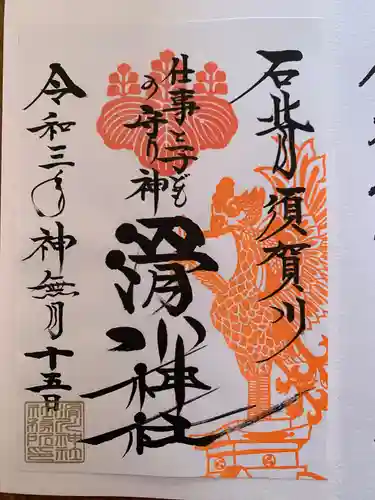 石背 須賀川
仕事と子ども
の守り神
滑川神社
令和三年 神無月 十五日